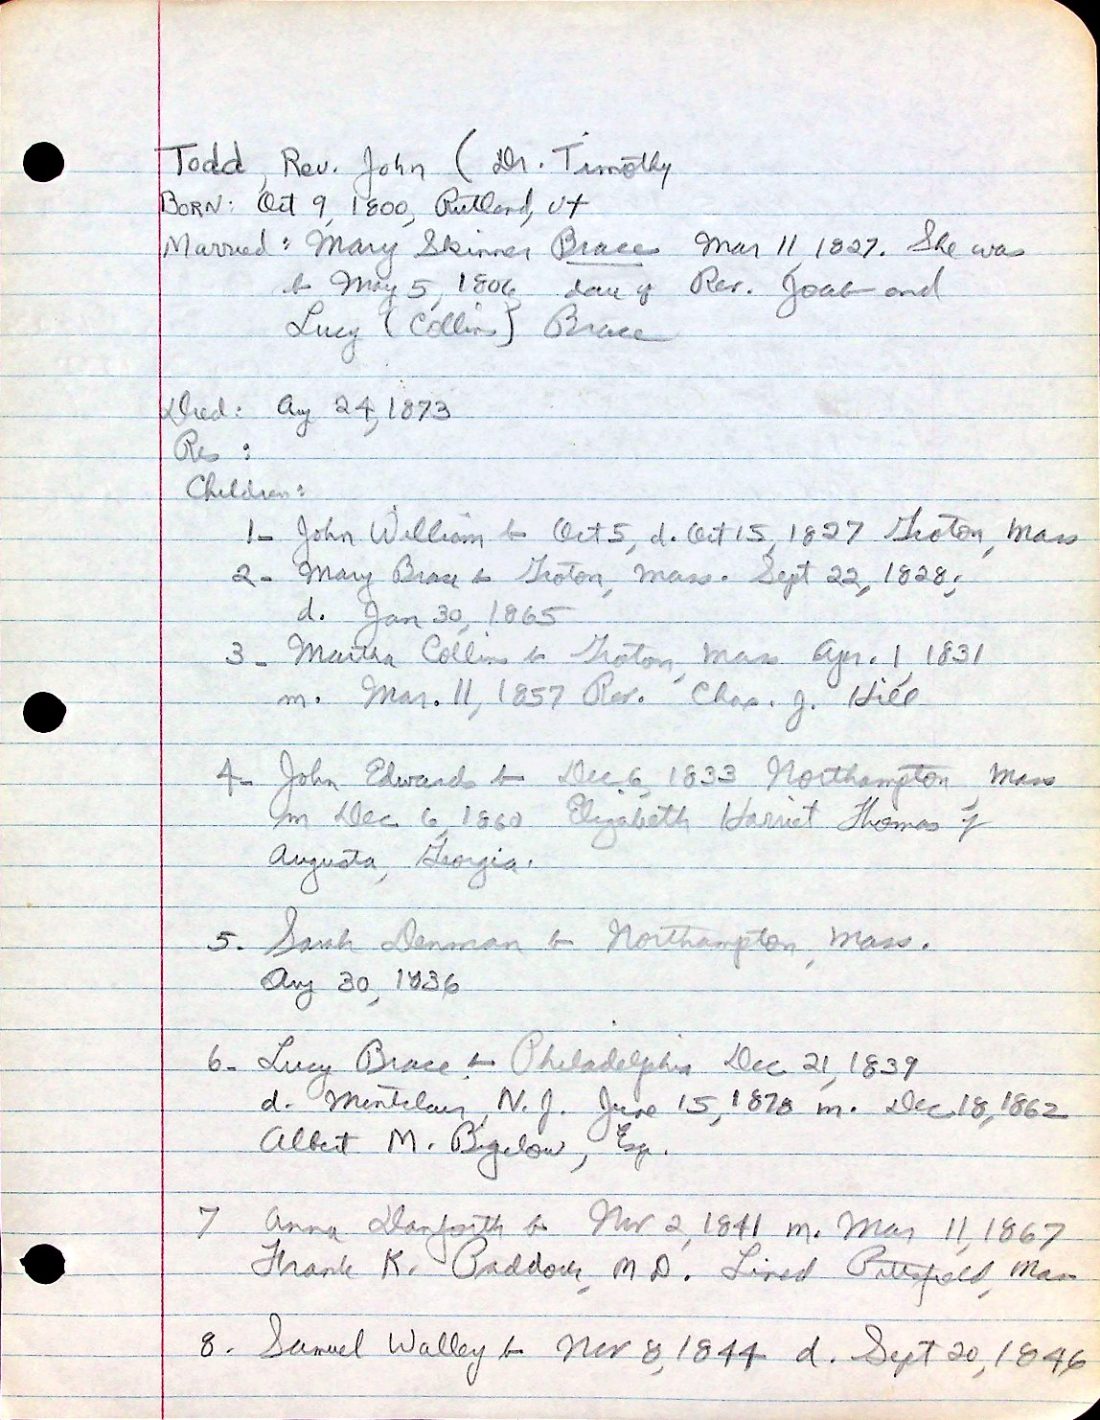 Todd, Rev. John (Dr. Timothy
BORN: Oct 9, 1800, Rutland, Vt
Married: Mary Skinner Brace Mar 11, 1827. She was
b May 5, 1806 dau of Rev. Joab and
Lucy (Collins) Brace
Died: Aug 24, 1873
Res :
Children:
1- John William b Oct 5, d. Oct 15, 1827 Groton, Mass
2- Mary Brace b Groton, Mass. Sept 22, 1828;
d. Jan 30, 1865
3- Martha Collins b Groton, Mass Apr. 1, 1831
m. Mar. 11, 1857 Rev. Chas. J. Hill
4- John Edwards b Dec 6, 1833 Northampton, Mass
m Dec 6, 1860 Elizabeth Harriet Thomas of
Augusta, Georgia.
5. Sarah Denman b Northampton, Mass.
Aug 30, 1836
6- Lucy Brace b Philadelphia Dec 21, 1839
d. Montclair, N.J. June 15, 1878 m. Dec 18, 1862
Albert M. Bigelow, Esq.
7 Anna Danforth b Nov 2, 1841 m. Mar 11, 1867
Frank K. Paddock, M D. Lived Pittsfield, Mass
8. Samuel Walley b Nov 8, 1844 d. Sept 20, 1846